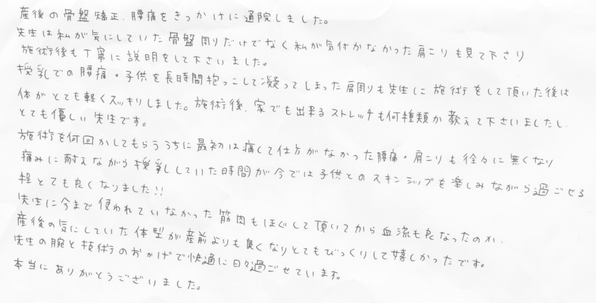 産後の骨盤矯正、腰痛をきっかけに通院しました。
先生は私が気にしていた骨盤周りだけでなく私が気付かなかった肩こりも見て下さり
施術後も丁寧に説明をして下さいました。
授乳での腰痛・子供を長時間抱っこして凝ってしまった肩周りも先生に施術をして頂いた後は
体がとても軽くスッキリしました。施術後、家でも出来るストレッチも何種類か教えて下さいましたし
とても優しい先生です。
施術を何回かしてもらううちに最初は痛くて仕方がなかった腰痛・肩こりも徐々に無くなり
痛みに耐えながら授乳していた時間が今では子供とのスキンシップを楽しみながら過ごせる
程とても良くなりました!!
先生に今まで使われていなかった筋肉もほぐして頂いてから血流も良なったのか、
産後の気にしていた体型が産前よりも良くなりとてもびっくりして嬉しかったです。
先生の腕と技術のおかげで快適に日々過ごせています。
本当にありがとうございました。